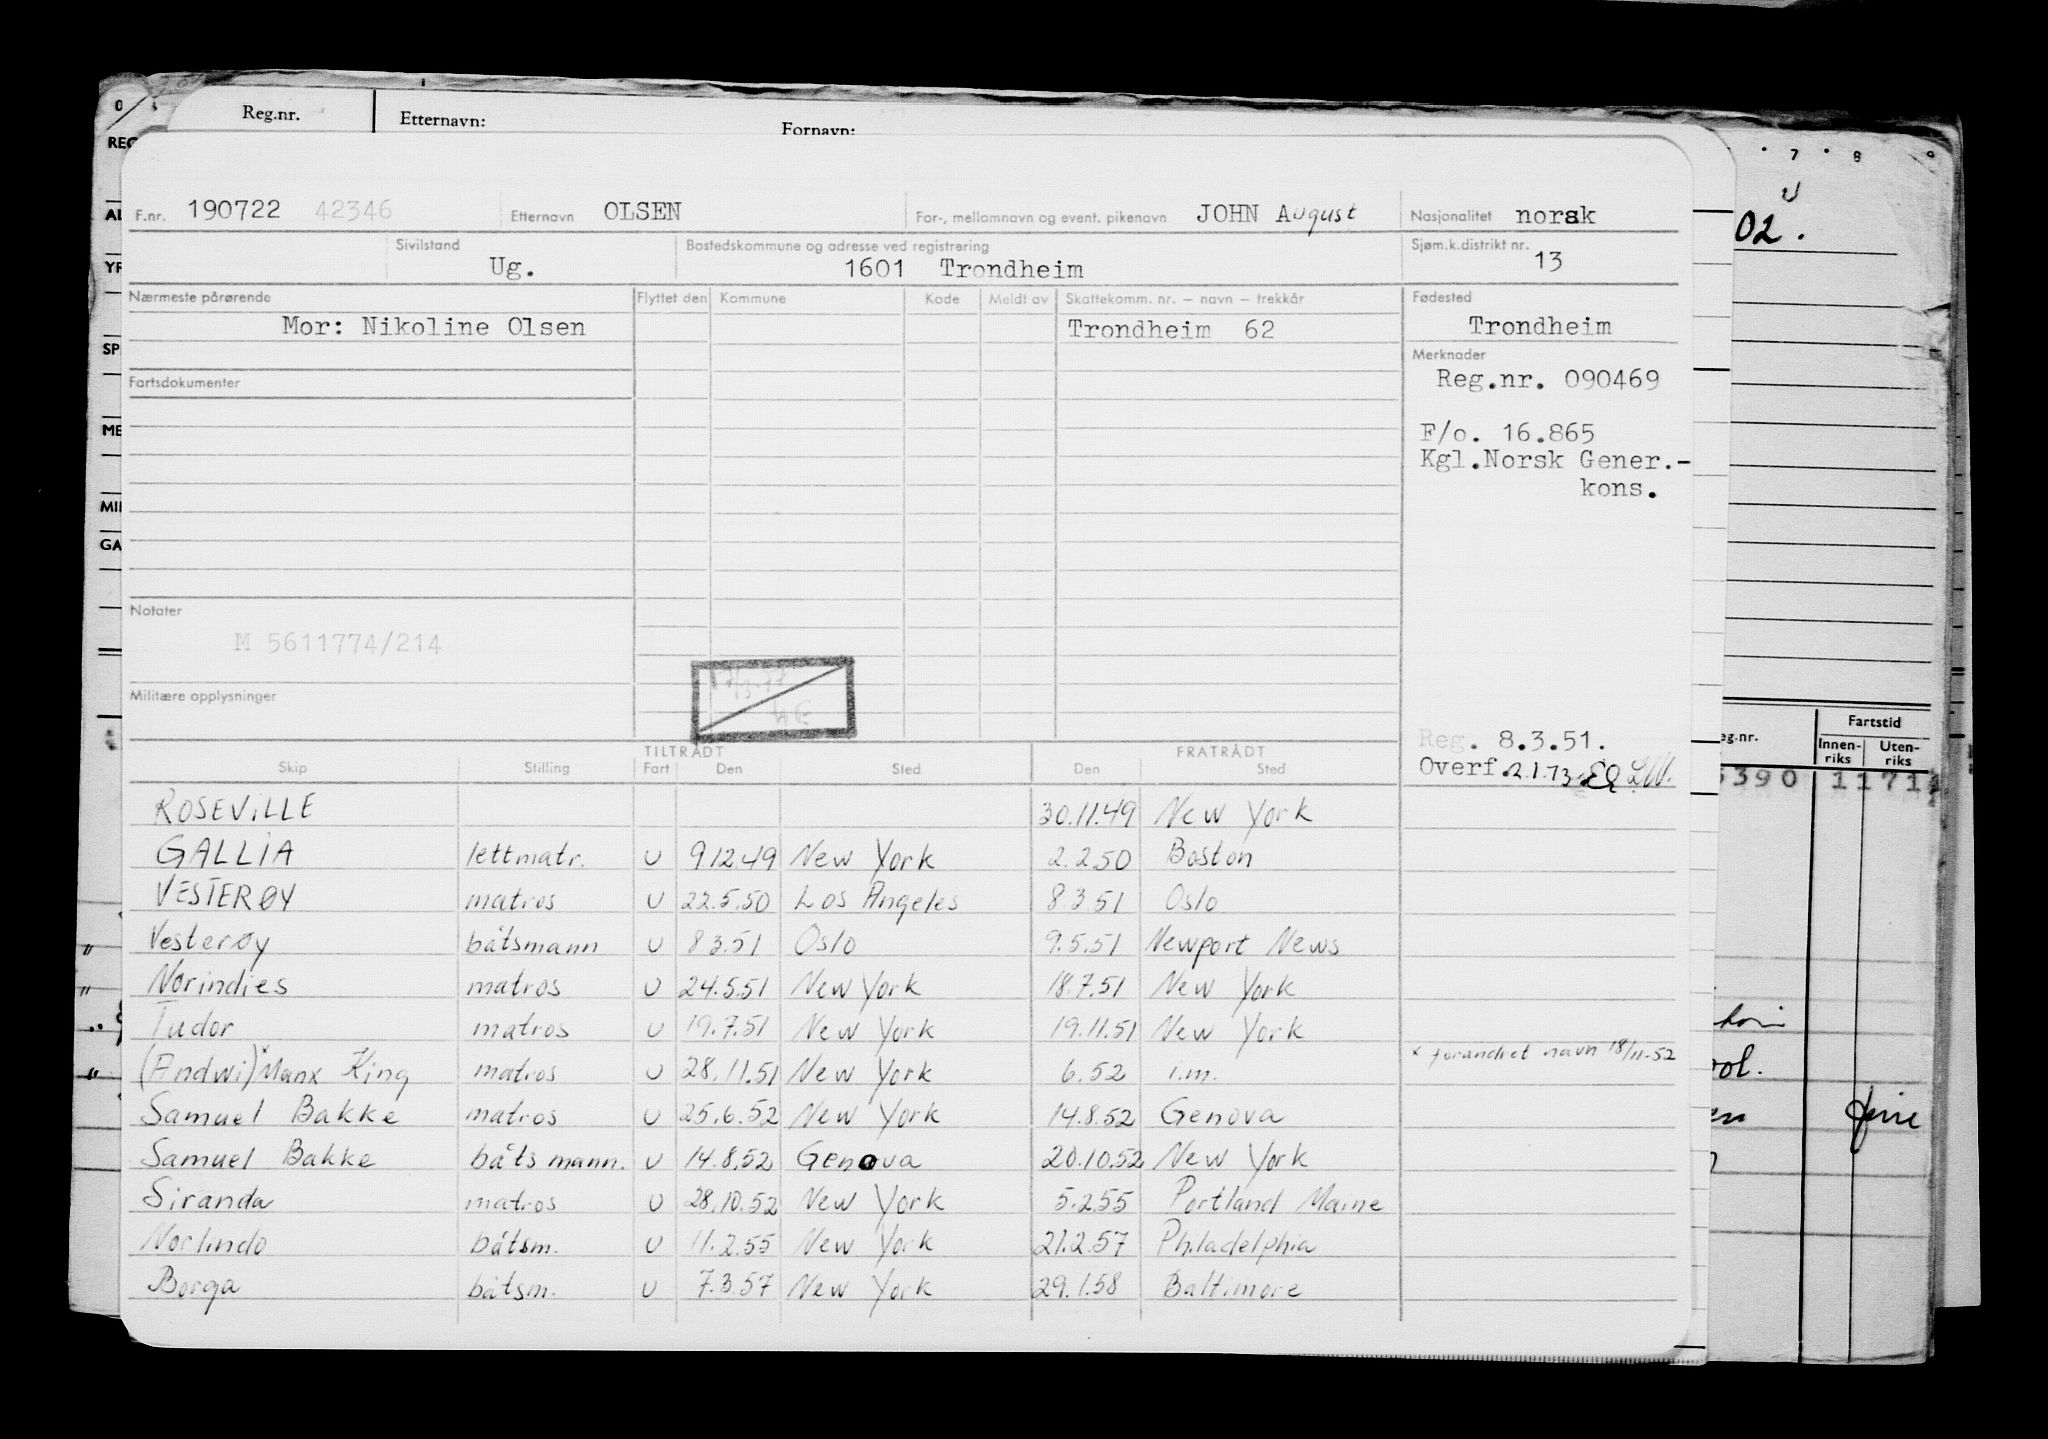 Reg.nr. Etternavn: Fornavn:
F.nr. 190722 42346 Etternavn OLSEN For-, mellomnavn og event. pikenavn JOHN August Nasjonalitet norsk
Sivilstand Ug. Bostedskommune og adresse ved registrering 1601 Trondheim Sjøm.k.distrikt nr. 13
Nærmeste pårørende Flyttet den Kommune Kode Meldt av Skattekomm. nr. – navn – trekkår Fødested
Mor: Nikoline Olsen Trondheim 62 Trondheim
Merknader
Fartsdokumenter Reg.nr. 090469
F/o. 16.865
Kgl.Norsk Gener.-
kons.
Notater
M 5611774/214
Militære opplysninger
Reg. 8.3.51.
TILTRÅDT FRATRÅDT
Skip Stilling Fart Den Sted Den Sted Overf. 2.1.73
ROSEVILLE 30.11.49 New York
GALLIA lettmatr. U 9.12.49 New York 2.2.50 Boston
VESTERØY matros U 22.5.50 Los Angeles 8.3.51 Oslo
Vesterøy båtsmann U 8.3.51 Oslo 9.5.51 Newport News
Norindies matros U 24.5.51 New York 18.7.51 New York
Tudor matros U 19.7.51 New York 19.11.51 New York
(Andwi)x Manx King matros U 28.11.51 New York 6.52 i.m. x forandret navn 18/11-52
Samuel Bakke matros U 25.6.52 New York 14.8.52 Genova
Samuel Bakke båtsmann. U 14.8.52 Genova 20.10.52 New York
Siranda matros U 28.10.52 New York 5.2.55 Portland Maine
Norlindo båtsm. U 11.2.55 New York 21.2.57 Philadelphia
Borga båtsm. U 7.3.57 New York 29.1.58 Baltimore
7 8 9
02.
Fartstid
Innen-riks Uten-riks